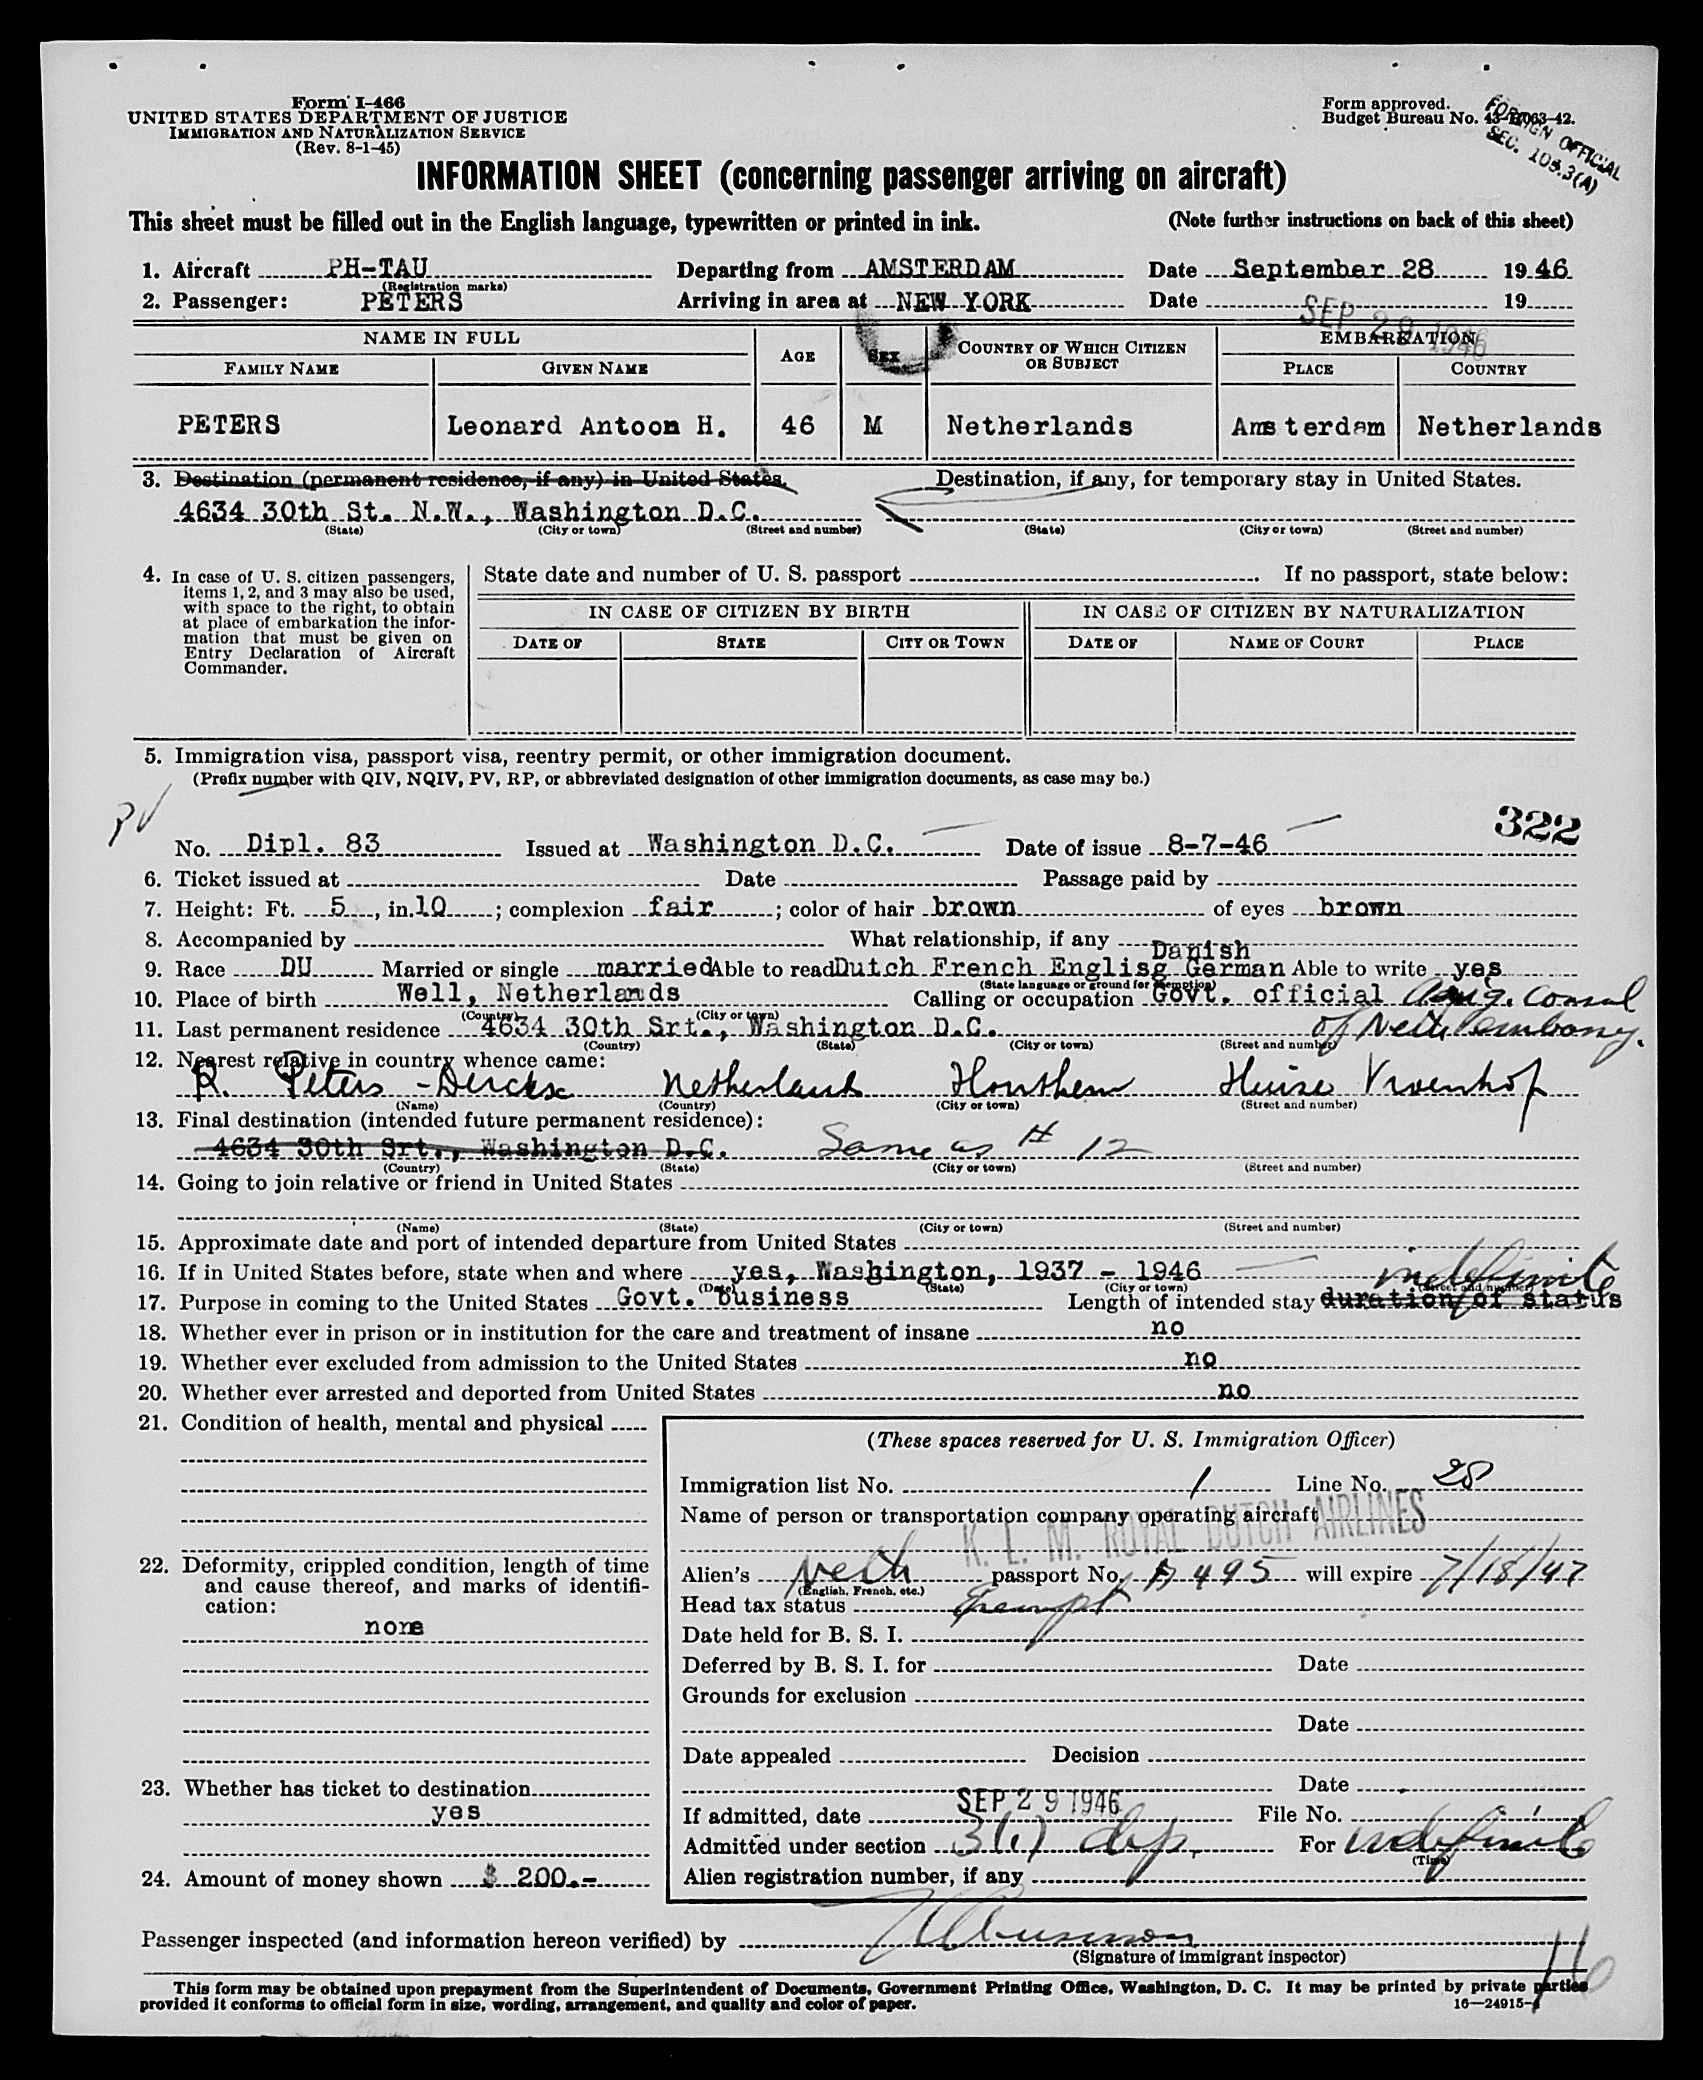 Form I-466
UNITED STATES DEPARTMENT OF JUSTICE
IMMIGRATION AND NATURALIZATION SERVICE
(Rev. 8-1-45)
Form approved.
Budget Bureau No. 43-R063-42.
FOREIGN OFFICIAL
SEC. 103.3(A)
INFORMATION SHEET (concerning passenger arriving on aircraft)
This sheet must be filled out in the English language, typewritten or printed in ink. (Note further instructions on back of this sheet)
1. Aircraft PH-TAU Departing from AMSTERDAM Date September 28 1946
(Registration marks)
2. Passenger: PETERS Arriving in area at NEW YORK Date 19
SEP 29 1946
NAME IN FULL AGE SEX COUNTRY OF WHICH CITIZEN OR SUBJECT EMBARKATION
FAMILY NAME GIVEN NAME PLACE COUNTRY
PETERS Leonard Antoon H. 46 M Netherlands Amsterdam Netherlands
3. Destination (permanent residence, if any) in United States. Destination, if any, for temporary stay in United States.
4634 30th St. N.W., Washington D.C.
(State) (City or town) (Street and number) (State) (City or town) (Street and number)
4. In case of U. S. citizen passengers, items 1, 2, and 3 may also be used, with space to the right, to obtain at place of embarkation the information that must be given on Entry Declaration of Aircraft Commander.
State date and number of U. S. passport . If no passport, state below:
IN CASE OF CITIZEN BY BIRTH IN CASE OF CITIZEN BY NATURALIZATION
DATE OF STATE CITY OR TOWN DATE OF NAME OF COURT PLACE
5. Immigration visa, passport visa, reentry permit, or other immigration document.
(Prefix number with QIV, NQIV, PV, RP, or abbreviated designation of other immigration documents, as case may be.)
PV
322
No. Dipl. 83 Issued at Washington D.C. Date of issue 8-7-46
6. Ticket issued at Date Passage paid by
7. Height: Ft. 5, in. 10; complexion fair; color of hair brown of eyes brown
8. Accompanied by What relationship, if any
Danish
9. Race DU Married or single married Able to read Dutch French Englisg German Able to write yes
(State language or ground for exemption)
10. Place of birth Well, Netherlands Calling or occupation Govt. official Consul
(Country) (City or town)
11. Last permanent residence 4634 30th Srt., Washington D.C. of Neth. embassy.
(Country) (State) (City or town) (Street and number)
12. Nearest relative in country whence came:
R. Peters-Dercksx Netherland Houthem Huize Vroenhof
(Name) (Country) (City or town) (Street and number)
13. Final destination (intended future permanent residence):
4634 30th Srt., Washington D.C. Same as # 12
(Country) (State) (City or town) (Street and number)
14. Going to join relative or friend in United States
(Name) (State) (City or town) (Street and number)
15. Approximate date and port of intended departure from United States
16. If in United States before, state when and where yes, Washington, 1937 - 1946
(Date) (State) (City or town) (Street and number)
indefinite
17. Purpose in coming to the United States Govt. business Length of intended stay duration of status
18. Whether ever in prison or in institution for the care and treatment of insane no
19. Whether ever excluded from admission to the United States no
20. Whether ever arrested and deported from United States no
21. Condition of health, mental and physical
22. Deformity, crippled condition, length of time and cause thereof, and marks of identification:
none
23. Whether has ticket to destination
yes
24. Amount of money shown $ 200.-
(These spaces reserved for U. S. Immigration Officer)
Immigration list No. 1 Line No. 28
Name of person or transportation company operating aircraft
K. L. M. ROYAL DUTCH AIRLINES
Alien's Neth passport No. A 495 will expire 7/18/47
(English, French, etc.)
Head tax status Exempt
Date held for B. S. I.
Deferred by B. S. I. for Date
Grounds for exclusion
Date
Date appealed Decision
Date
If admitted, date SEP 29 1946 File No.
Admitted under section 3(1) dip. For indefinite
(Time)
Alien registration number, if any
Passenger inspected (and information hereon verified) by
(Signature of immigrant inspector)
This form may be obtained upon prepayment from the Superintendent of Documents, Government Printing Office, Washington, D. C. It may be printed by private parties
provided it conforms to official form in size, wording, arrangement, and quality and color of paper.
16—24915-1